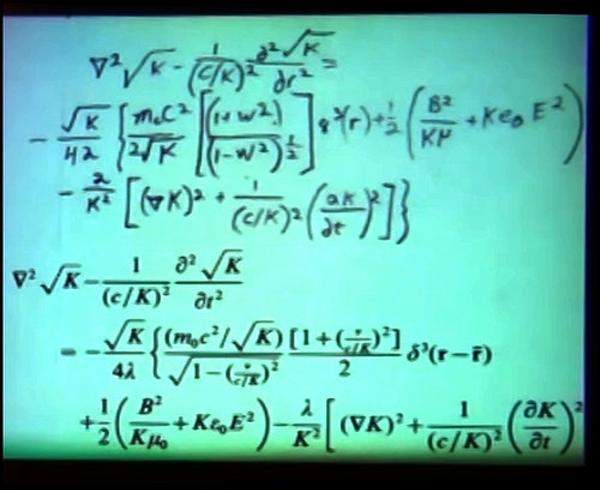 ∇²√K - 1/(c/K)² ∂²√K/∂r² =
- √K/42 { m₀C²/2√K [(1+w²)/(1-w²)^½] 8³(r) + ½ (B²/Kμ + Ke₀E²)
- 2/K² [(∇K)² + 1/(c/K)² (∂K/∂t)²]}
∇²√K - 1/(c/K)² ∂²√K/∂t²
= - √K/4λ { (m₀c²/√K)/√(1-(v/c/K)²) [1+(v/c/K)²]/2 δ³(r - r̄)
+ 1/2 (B²/Kμ₀ + Kε₀E²) - λ/K² [(∇K)² + 1/(c/K)² (∂K/∂t)²